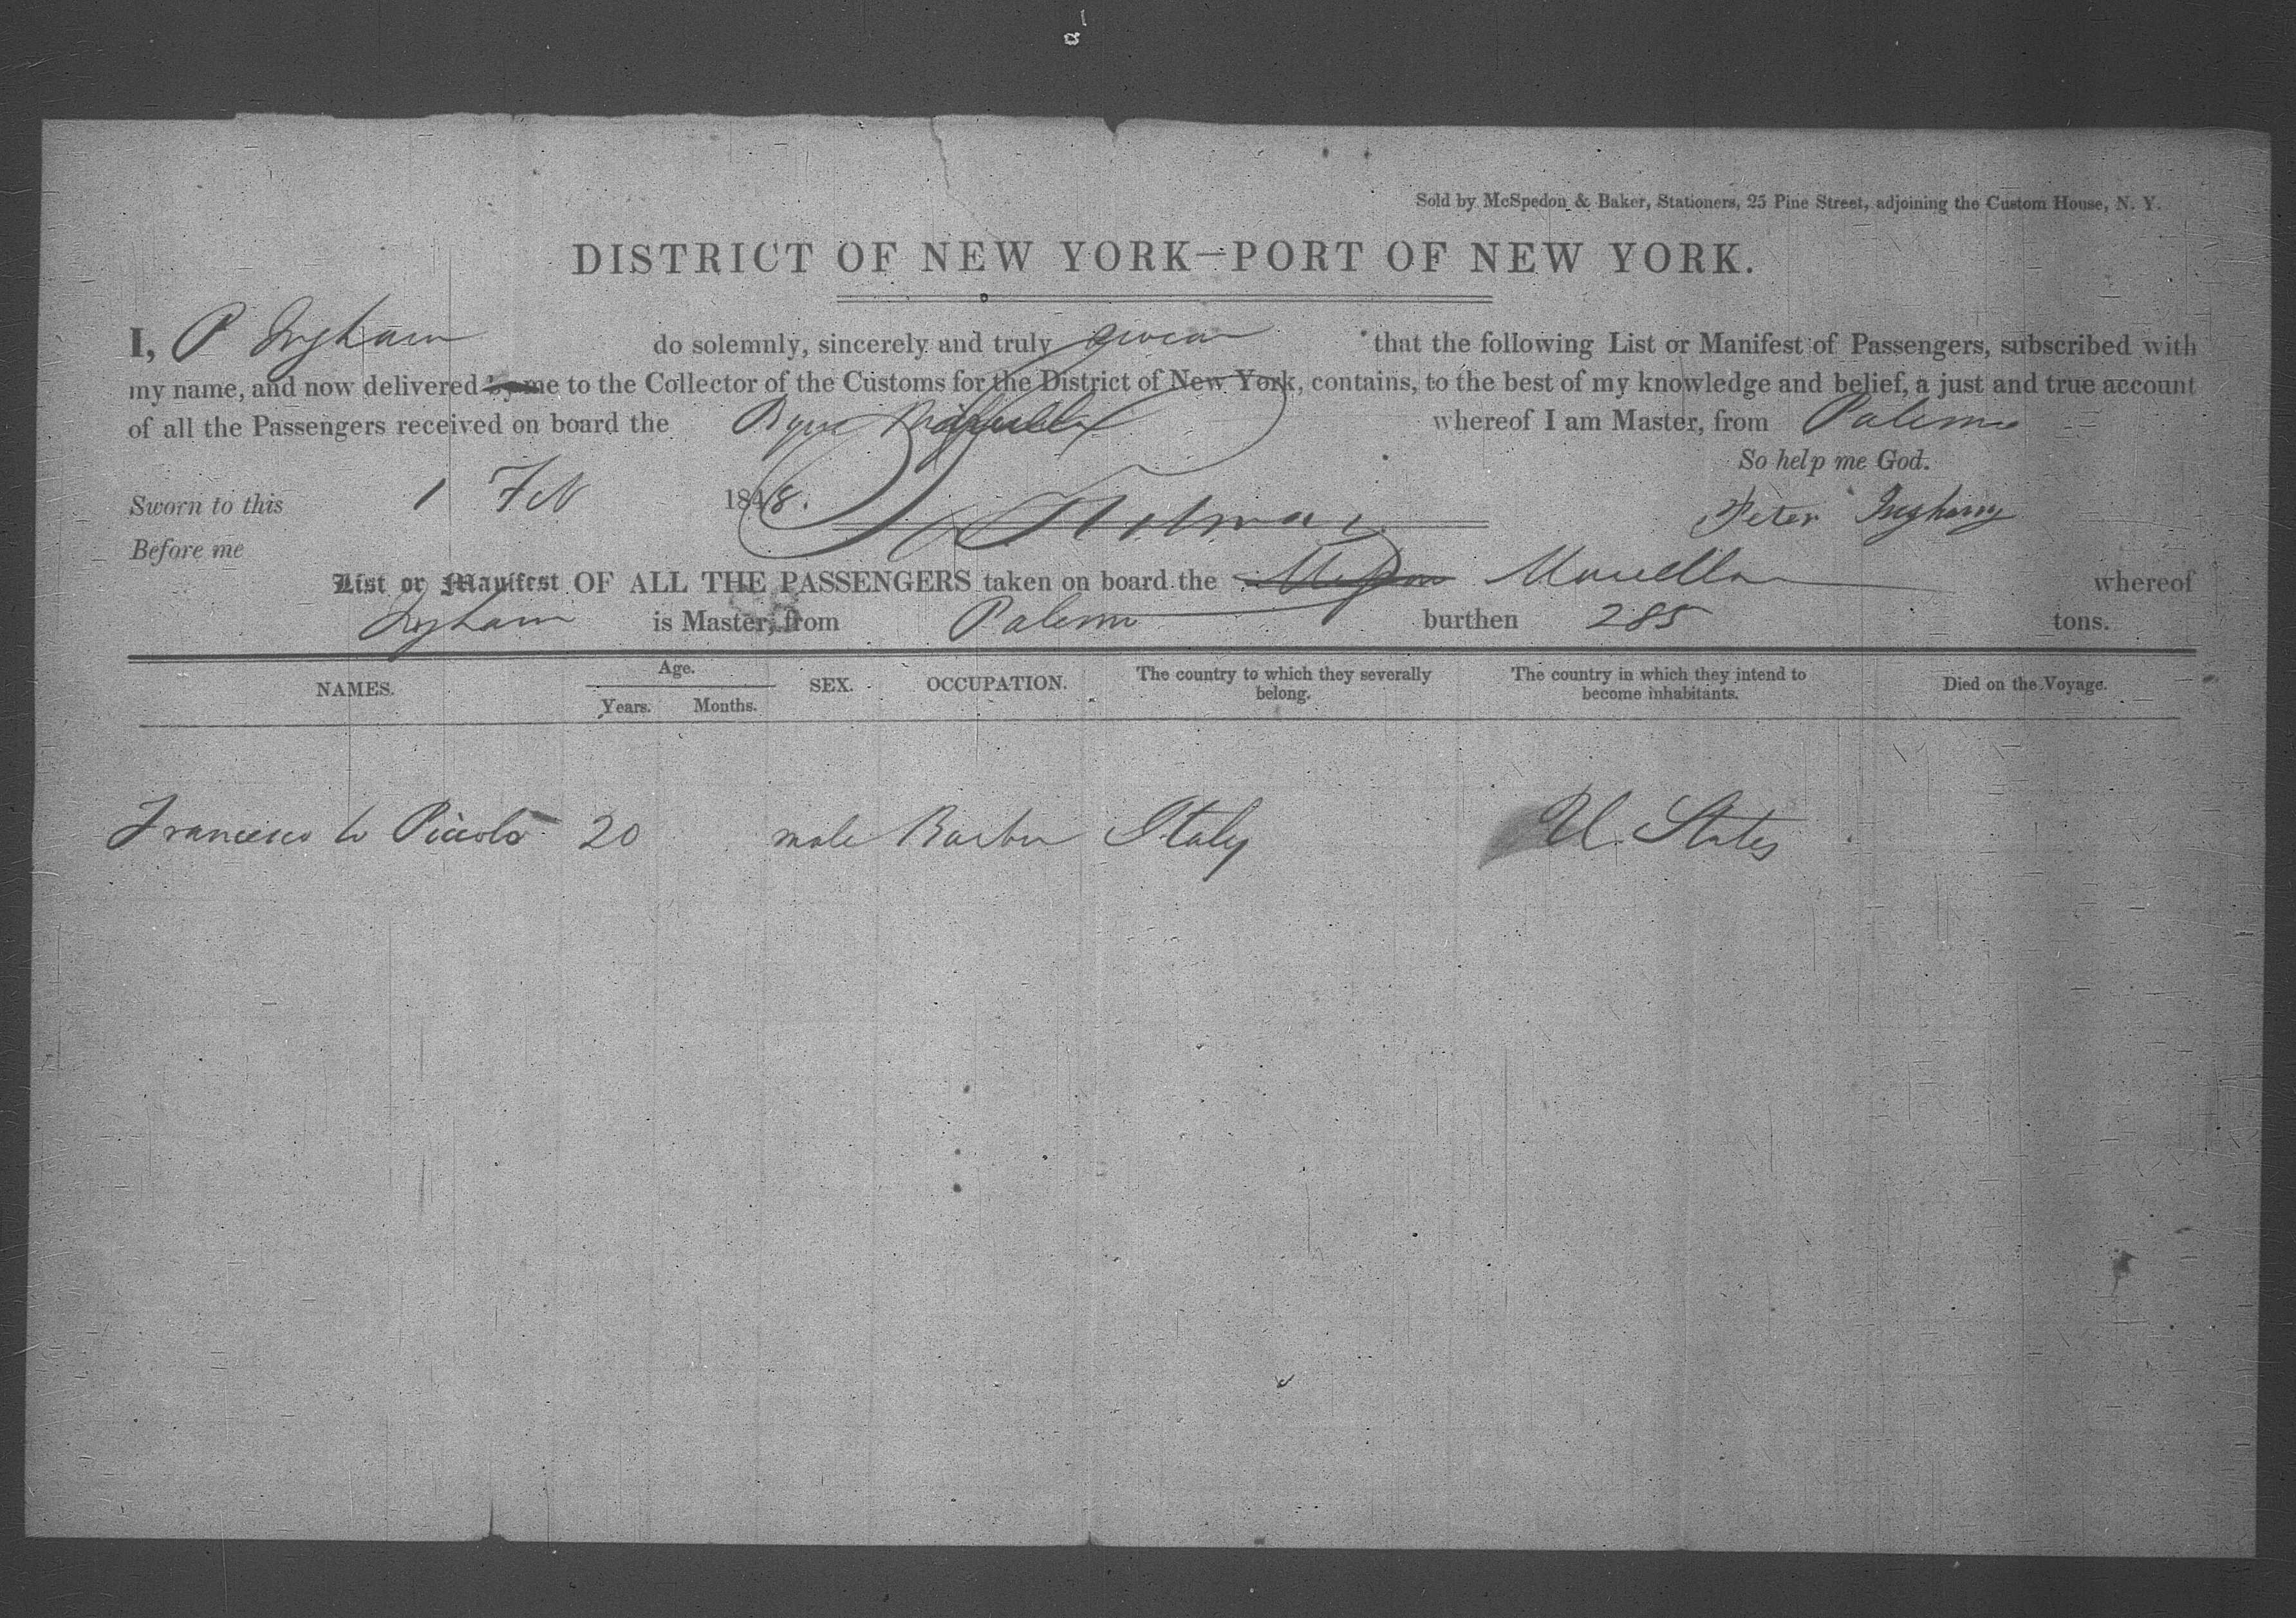 Sold by McSpedon & Baker, Stationers, 25 Pine Street, adjoining the Custom House, N. Y.
DISTRICT OF NEW YORK—PORT OF NEW YORK.
I, P Ingham do solemnly, sincerely and truly swear that the following List or Manifest of Passengers, subscribed with
my name, and now delivered by me to the Collector of the Customs for the District of New York, contains, to the best of my knowledge and belief, a just and true account
of all the Passengers received on board the whereof I am Master, from Palermo
So help me God.
Sworn to this 1 Feb 1848.
Peter Ingham
Before me
List or Manifest OF ALL THE PASSENGERS taken on board the whereof
Ingham is Master, from Palermo burthen 285 tons.
NAMES. Age. Years. Months. SEX. OCCUPATION. The country to which they severally belong. The country in which they intend to become inhabitants. Died on the Voyage.
Francesco lo Piccolo 20 male Barber Italy U. States